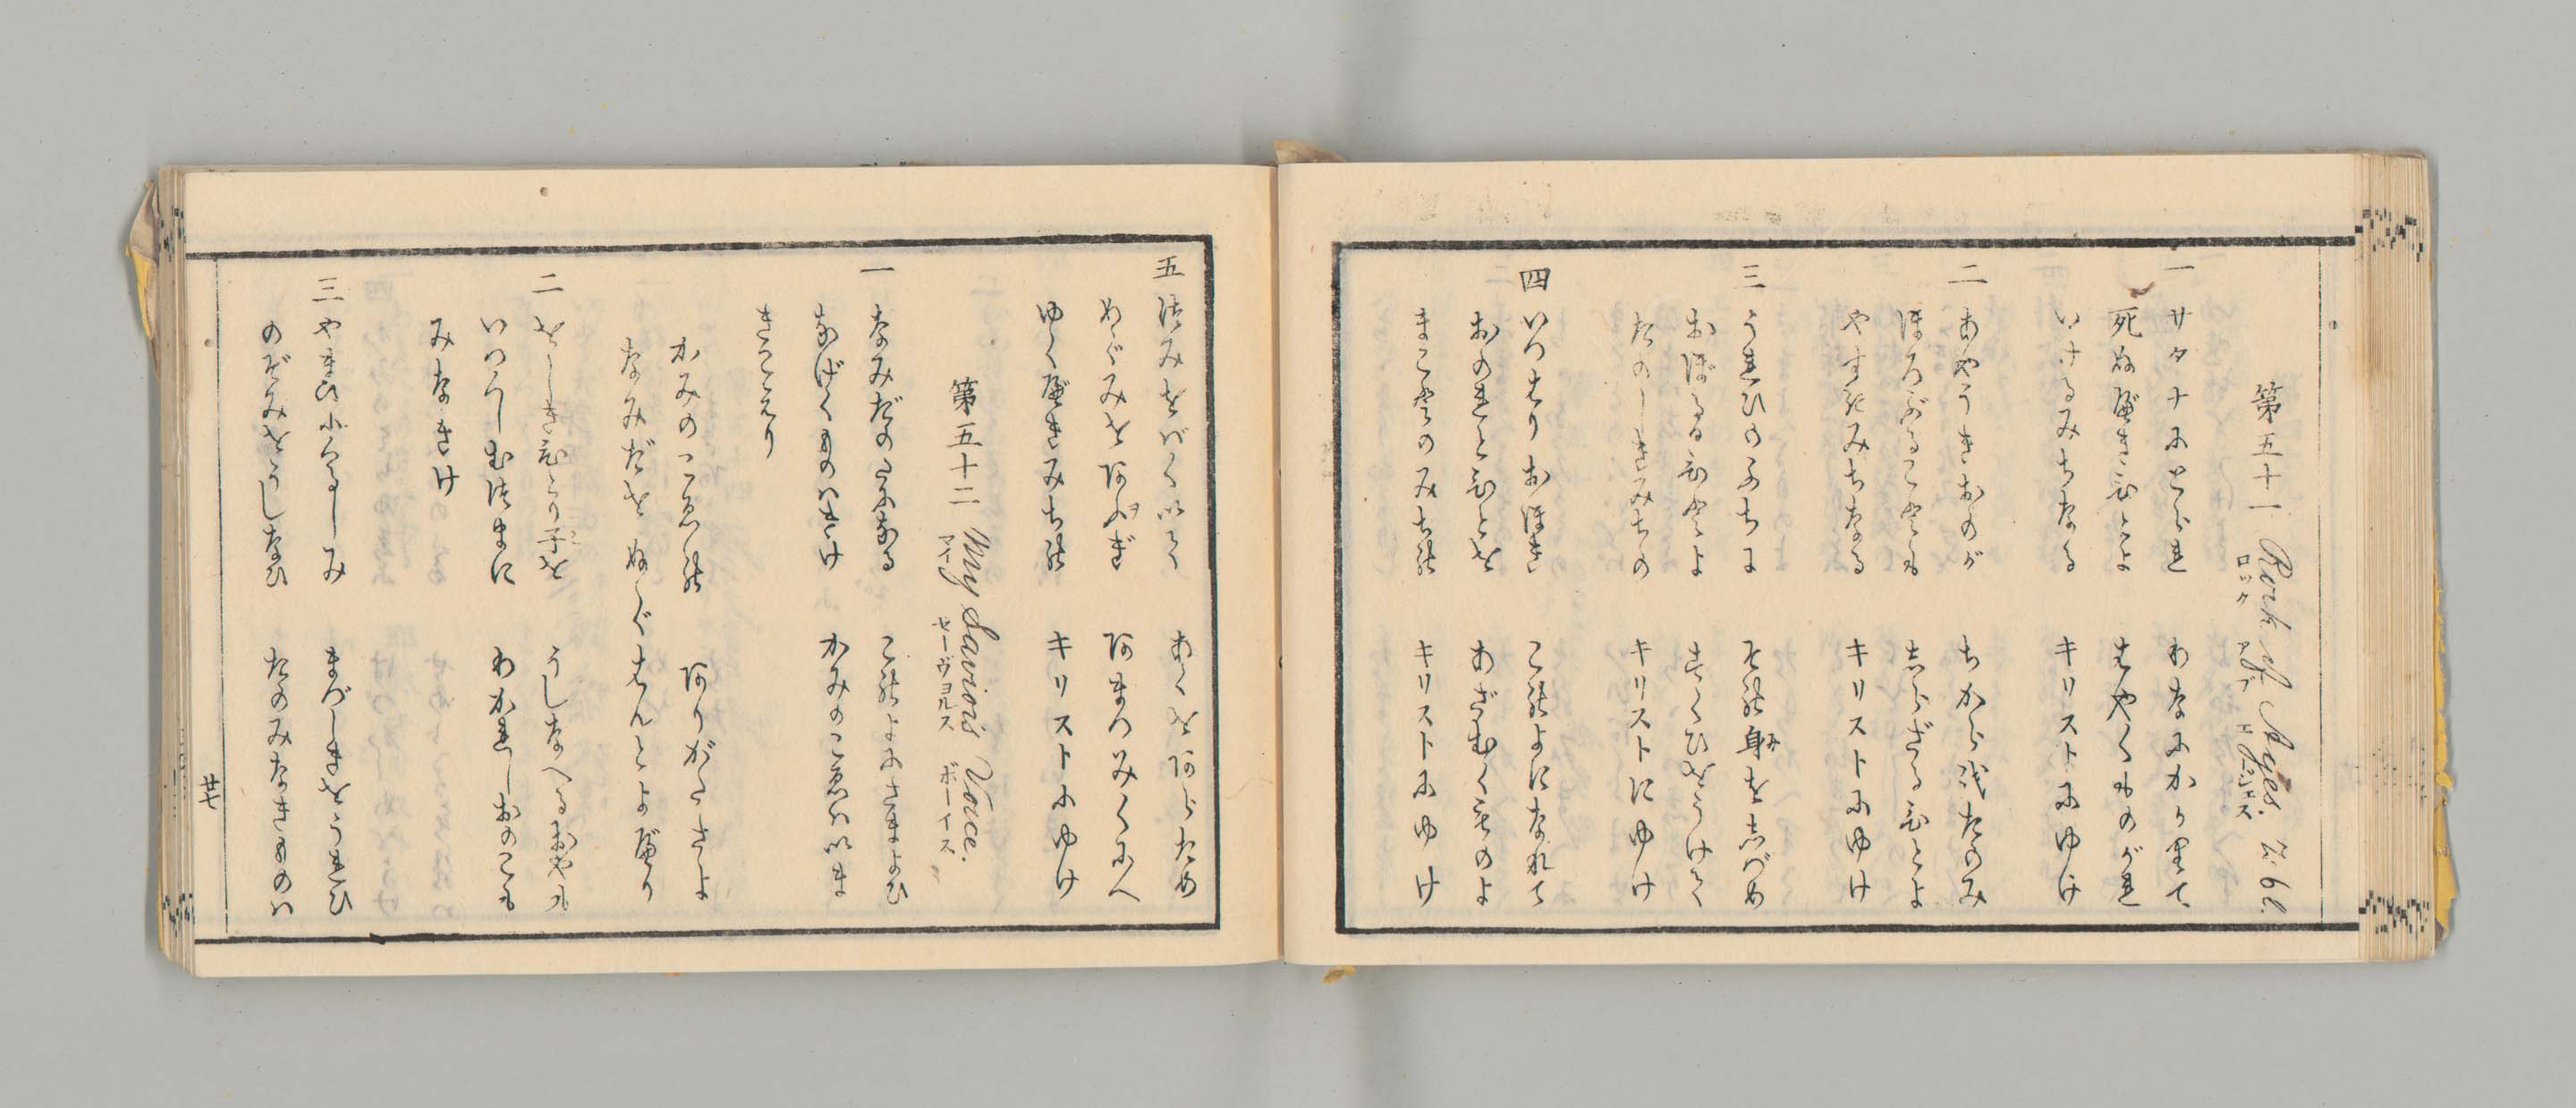 第五十一 Rock of Ages. 7.6l.
ロック アブ エジェス
一 サタナにとられ わなにかかりて
死ぬべきひとよ はやくものがれ
いけるみちなる キリストにゆけ
二 あやうきおのが ちからをたのみ
ほろぶることも しらざるひとよ
やすきみちなる キリストにゆけ
三 うれひのふちに その身をしづめ
おぼるるひとよ すくひをうけて
たのしきみちの キリストにゆけ
四 いつはりおほき このよになれて
おのれとひとを あざむくものよ
まことのみちの キリストにゆけ
五 つみをばくいて あくをあらため
めぐみをあふぎ あまつみくにへ
ゆくべきみちの キリストにゆけ
第五十二 My Savior's Voice.
マイ セーヴヨルス ボーイス
一 なみだのたになる このよにさまよひ
なげくものはきけ かみのこゑはいま
きこえり
かみのこゑの ありがたさよ
なみだをぬぐはんとよべり
二 をしきひとり子を うしなへるおやも
いつくしむつまに わかれしおのこも
みなきけ
三 やまひにくるしみ まづしきをうれひ
のぞみをうしなひ たのみなきものは
廿七